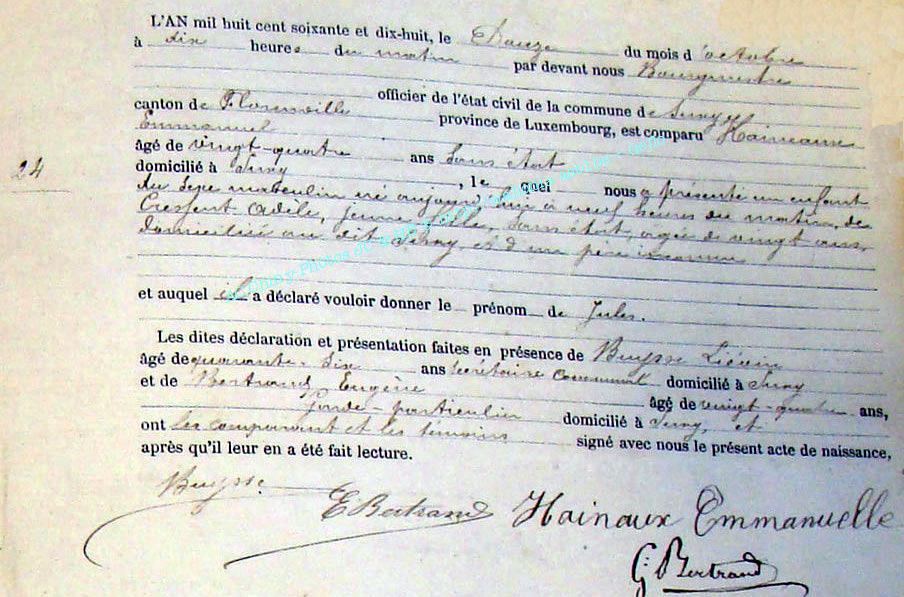 L'AN mil huit cent soixante et dix-huit, le Douze du mois d'octobre
à dix heures du matin par devant nous Bourgmestre
officier de l'état civil de la commune de Suxy
canton de Florenville province de Luxembourg, est comparu Haineaux
Emmanuel
âgé de vingt-quatre ans Sans état
24
domicilié à Suxy, le quel nous a présenté un enfant
du sexe masculin né aujourd'hui à neuf heures du matin, de
Cressent Adèle, jeune fille, sans état, agée de vingt ans,
domiciliée au dit Suxy, et d'un père inconnu
et auquel il a déclaré vouloir donner le prénom de Jules.
Les dites déclaration et présentation faites en présence de Buysse Liévin
âgé de quarante-six ans secrétaire communal domicilié à Suxy
et de Bertrand Eugène âgé de vingt-quatre ans,
Garde-particulier domicilié à Suxy, et
ont les comparant et les témoins signé avec nous le présent acte de naissance,
après qu'il leur en a été fait lecture.
Buysse
E Bertrand Hainaux Emmanuelle
G. Bertrand